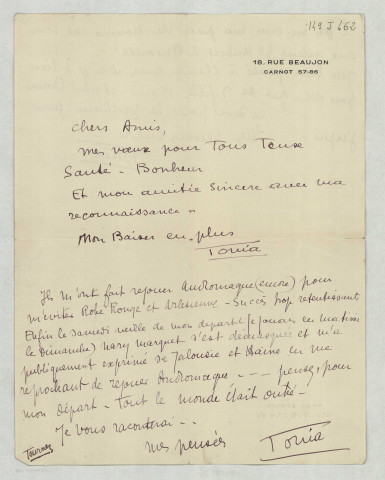 149 J 652
18, RUE BEAUJON
CARNOT 57-86
Chers Amis,
mes vœux pour Tous Tous
Santé - Bonheur
Et mon amitiée sincère avec ma
reconnaissance
Mon Baiser en plus
Tonia
Ils m'ont fait rejouer Andromaque (encore) pour
m'éviter Robe Rouge et Arlésienne - Succès trop retentissant
Enfin le samedi veille de mon départ (je jouais en matinée
le Dimanche) mary marquet s'est démasquée et m'a
publiquement exprimé sa Jalousie et Haine en me
reprochant de rejouer Andromaque - - - pensez, pour
mon départ - Tout le monde était outré -
Je vous raconterai - -
mes pensées
Tonia
Tournez